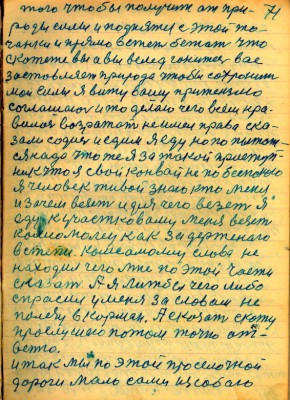 того чтобы получить от при- 71
роды силы и поднятся с этой по-
и прямо встеп бежат что
скажете вы а вы велед гонится вас
заставляет природа чтобы сохронит
мои силы я вижу вашу притензию
соглашаюс и то делаю чего всем нра-
вилося возратат не имеи права ска-
зали содис и едим я еду но по пытат-
ся надо что же я за такой преступ-
ник что я свой конвой не по беспокою
я человек живой знаю кто меня
и зачем везет и для чего везет я
еду к участковому меня везет
комсомолец как задержанего
встепи. комсомолцу слова не
находил чего мне по этой части
сказат. А я литбы чего либо
спросил у меня за словам не
полезу в корман. А сказат скажу
прослушаю потом точно отв-
вечю.
итак мы по этой проселочной
дороги мало сами из собою